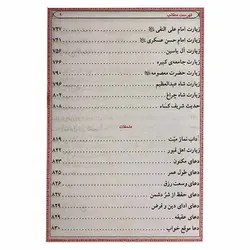 فهرست مطالب ۹
زیارت امام علی النقی ۷۴۷
زیارت امام حسن عسکری ۷۴۱
زیارت آل یاسین ۷۵۶
زیارت جامعه‌ی کبیره ۷۶۶
زیارت حضرت معصومه ۷۹۰
زیارت شاه عبدالعظیم ۷۹۶
زیارت شاه چراغ ۸۰۲
حدیث شریف کساء ۸۰۸
ملحقات
داب نماز میّت ۸۱۹
زیارت اهل قبور ۸۲۲
دعای مکنون ۸۲۳
دعای طول عمر ۸۲۵
دعای وسعت رزق ۸۲۶
دعای حفظ از شرّ دشمن ۸۲۷
دعای ادای دین و قرض ۸۲۹
دعای عقیقه ۸۲۹
دعا موقع خواب ۸۳۰